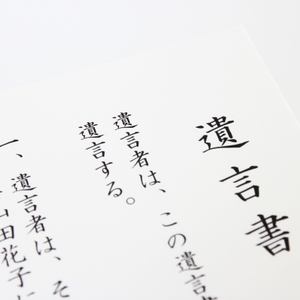 遺言書
遺言者は、この遺言書
遺言する。
一、遺言者は、そ
山田花子に